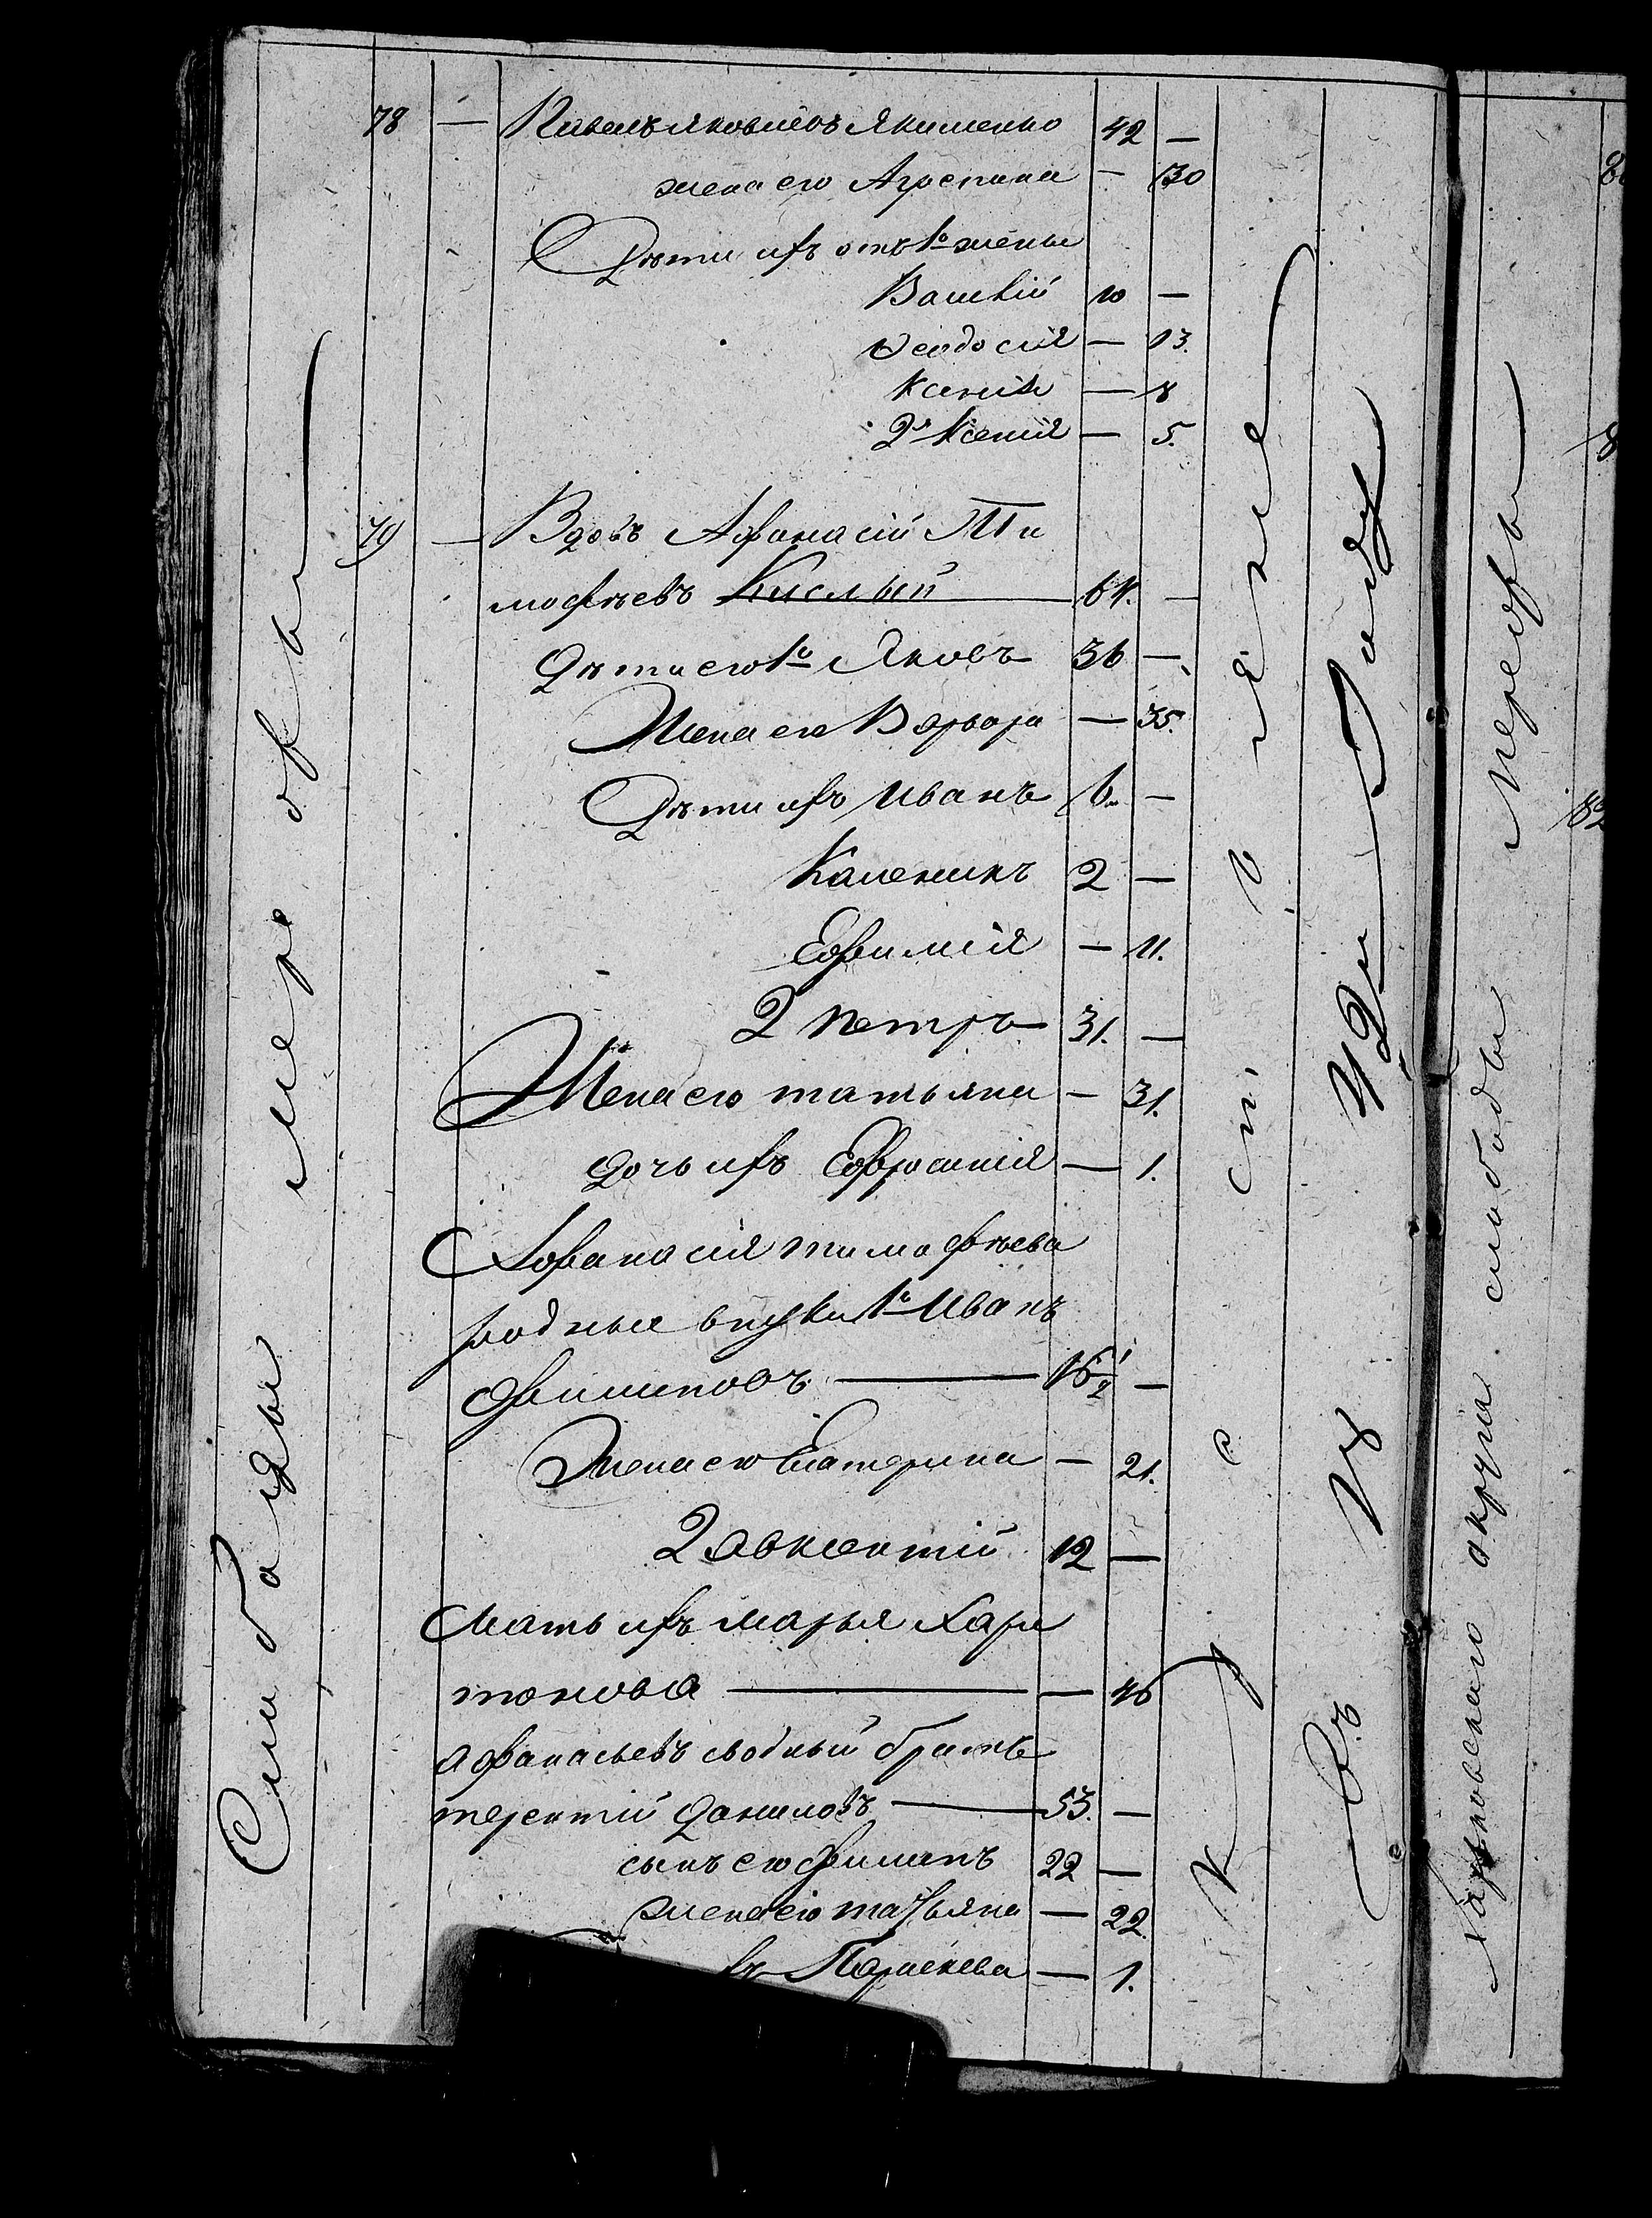 78 — Павелъ Яковлевъ Якименко 42 —
жена его Агрепина — 30
Дѣти ихъ отъ 1й жены
Василій 10 —
Ѳеодосия — 13.
Ксения — 8
2я Ксения — 5.
79 — Вдовъ Афанасій Ти
мофѣевъ Кислый 64. —
Дѣти его 1й Яковъ 36 —
Жена его Варвара — 35.
Дѣти ихъ Иванъ 6. —
Каленикъ 2 —
Ефимия — 11.
2 Петръ 31. —
Жена его татьяна — 31.
дочь ихъ Ефросиния — 1.
Афанасия тимофѣева
родные внуки 1й Иванъ
филиповъ 16 1/2 —
Жена его Екатерина — 21.
2 авксентій 12 —
Мать ихъ марья Хари
тонова — 46
афанасьевъ сводный братъ
терентій даниловъ 53. —
сынъ его филипъ 22 —
жена его татьяна — 22
хъ Параскева — 1.
Слободы мерефы
Харьковского округа слободы Мерефы
82